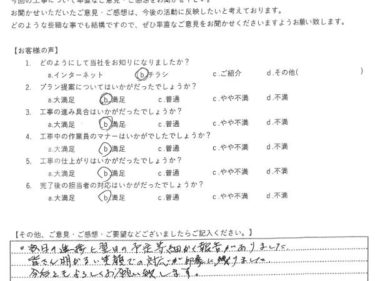 今回の工事について率直なご意見・ご感想をお聞かせください。
お聞かせいただいたご意見・ご感想は、今後の活動に反映したいと考えております。
どのような些細な事でも結構ですので、ぜひ率直なご意見をお聞かせくださいますようお願い致します。
【お客様の声】
1. どのようにして当社をお知りになりましたか？
a.インターネット b.チラシ c.ご紹介 d.その他( )
2. プラン提案についてはいかがだったでしょうか？
a.大満足 b.満足 c.普通 c.やや不満 d.不満
3. 工事の進み具合はいかがだったでしょうか？
a.大満足 b.満足 c.普通 c.やや不満 d.不満
4. 工事中の作業員のマナーはいかがでしたでしょうか？
a.大満足 b.満足 c.普通 c.やや不満 d.不満
5. 工事の仕上がりはいかがだったでしょうか？
a.大満足 b.満足 c.普通 c.やや不満 d.不満
6. 完了後の担当者の対応はいかがだったでしょうか？
a.大満足 b.満足 c.普通 c.やや不満 d.不満
【その他、ご意見・ご感想、ご要望などございましたらご記入ください。】
毎日の進捗と翌日の予定等細かく報告がありました。
皆さん明かるい笑顔での対応が印象に残りました。
今後ともよろしくお願い致します。